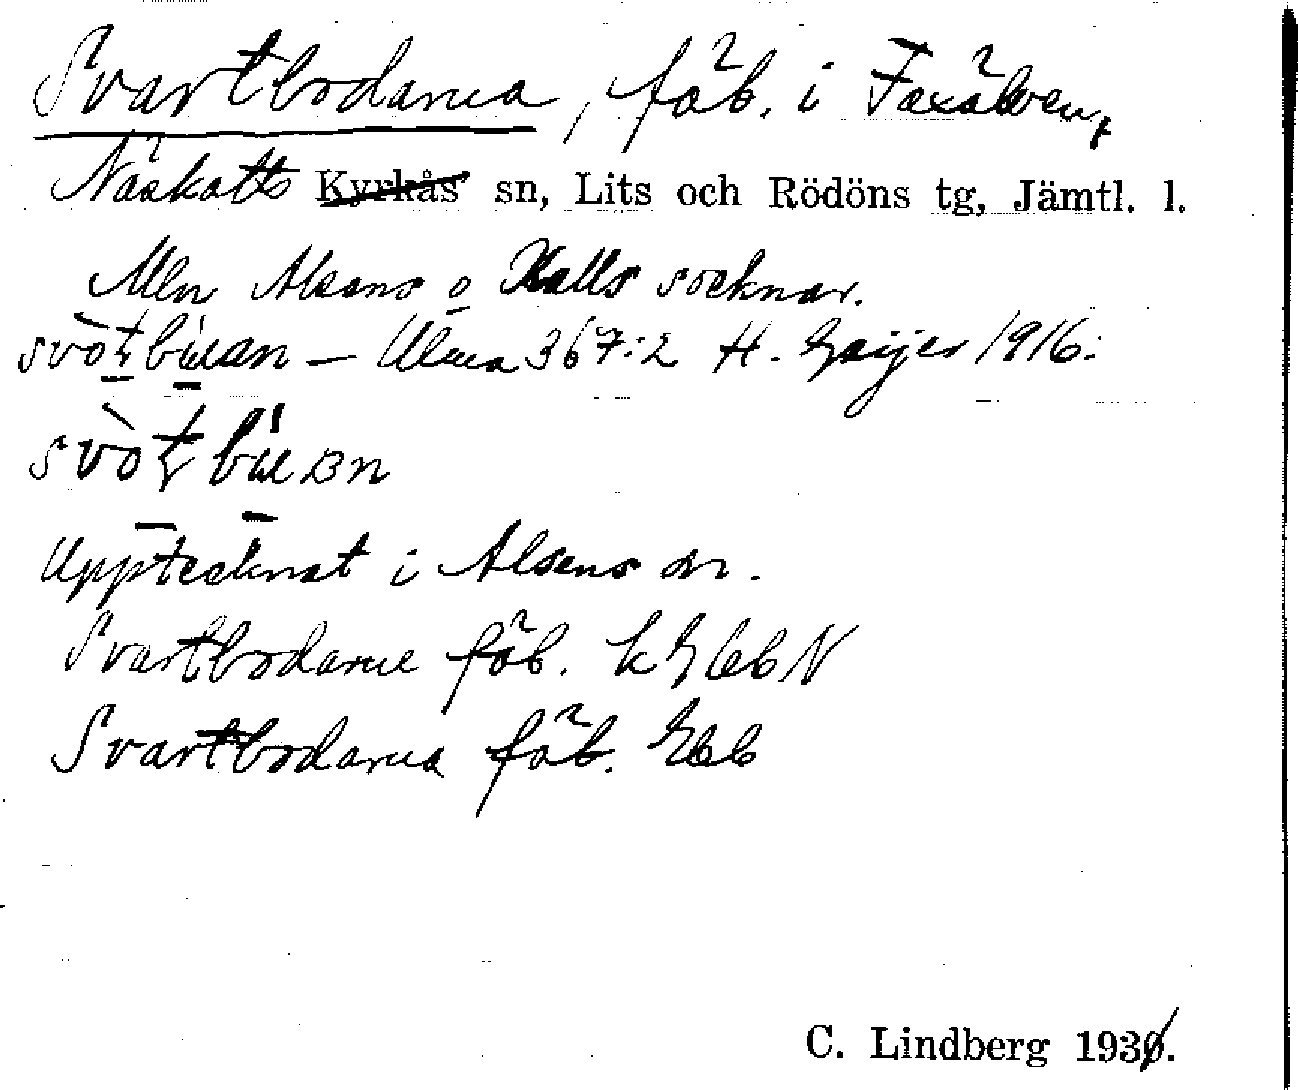 Svartbodarna, fäb. i Faxälven,
Näskotts Kyrkås sn, Lits och Rödöns tg, Jämtl. l.
Mln Alsens o Kalls socknar.
Ulma 367:2 H. Geijer 1916:
Upptecknat i Alsens sn.
Svartbodarne fäb. kGEbN
Svartbodarna fäb. Ebb
C. Lindberg 1930.